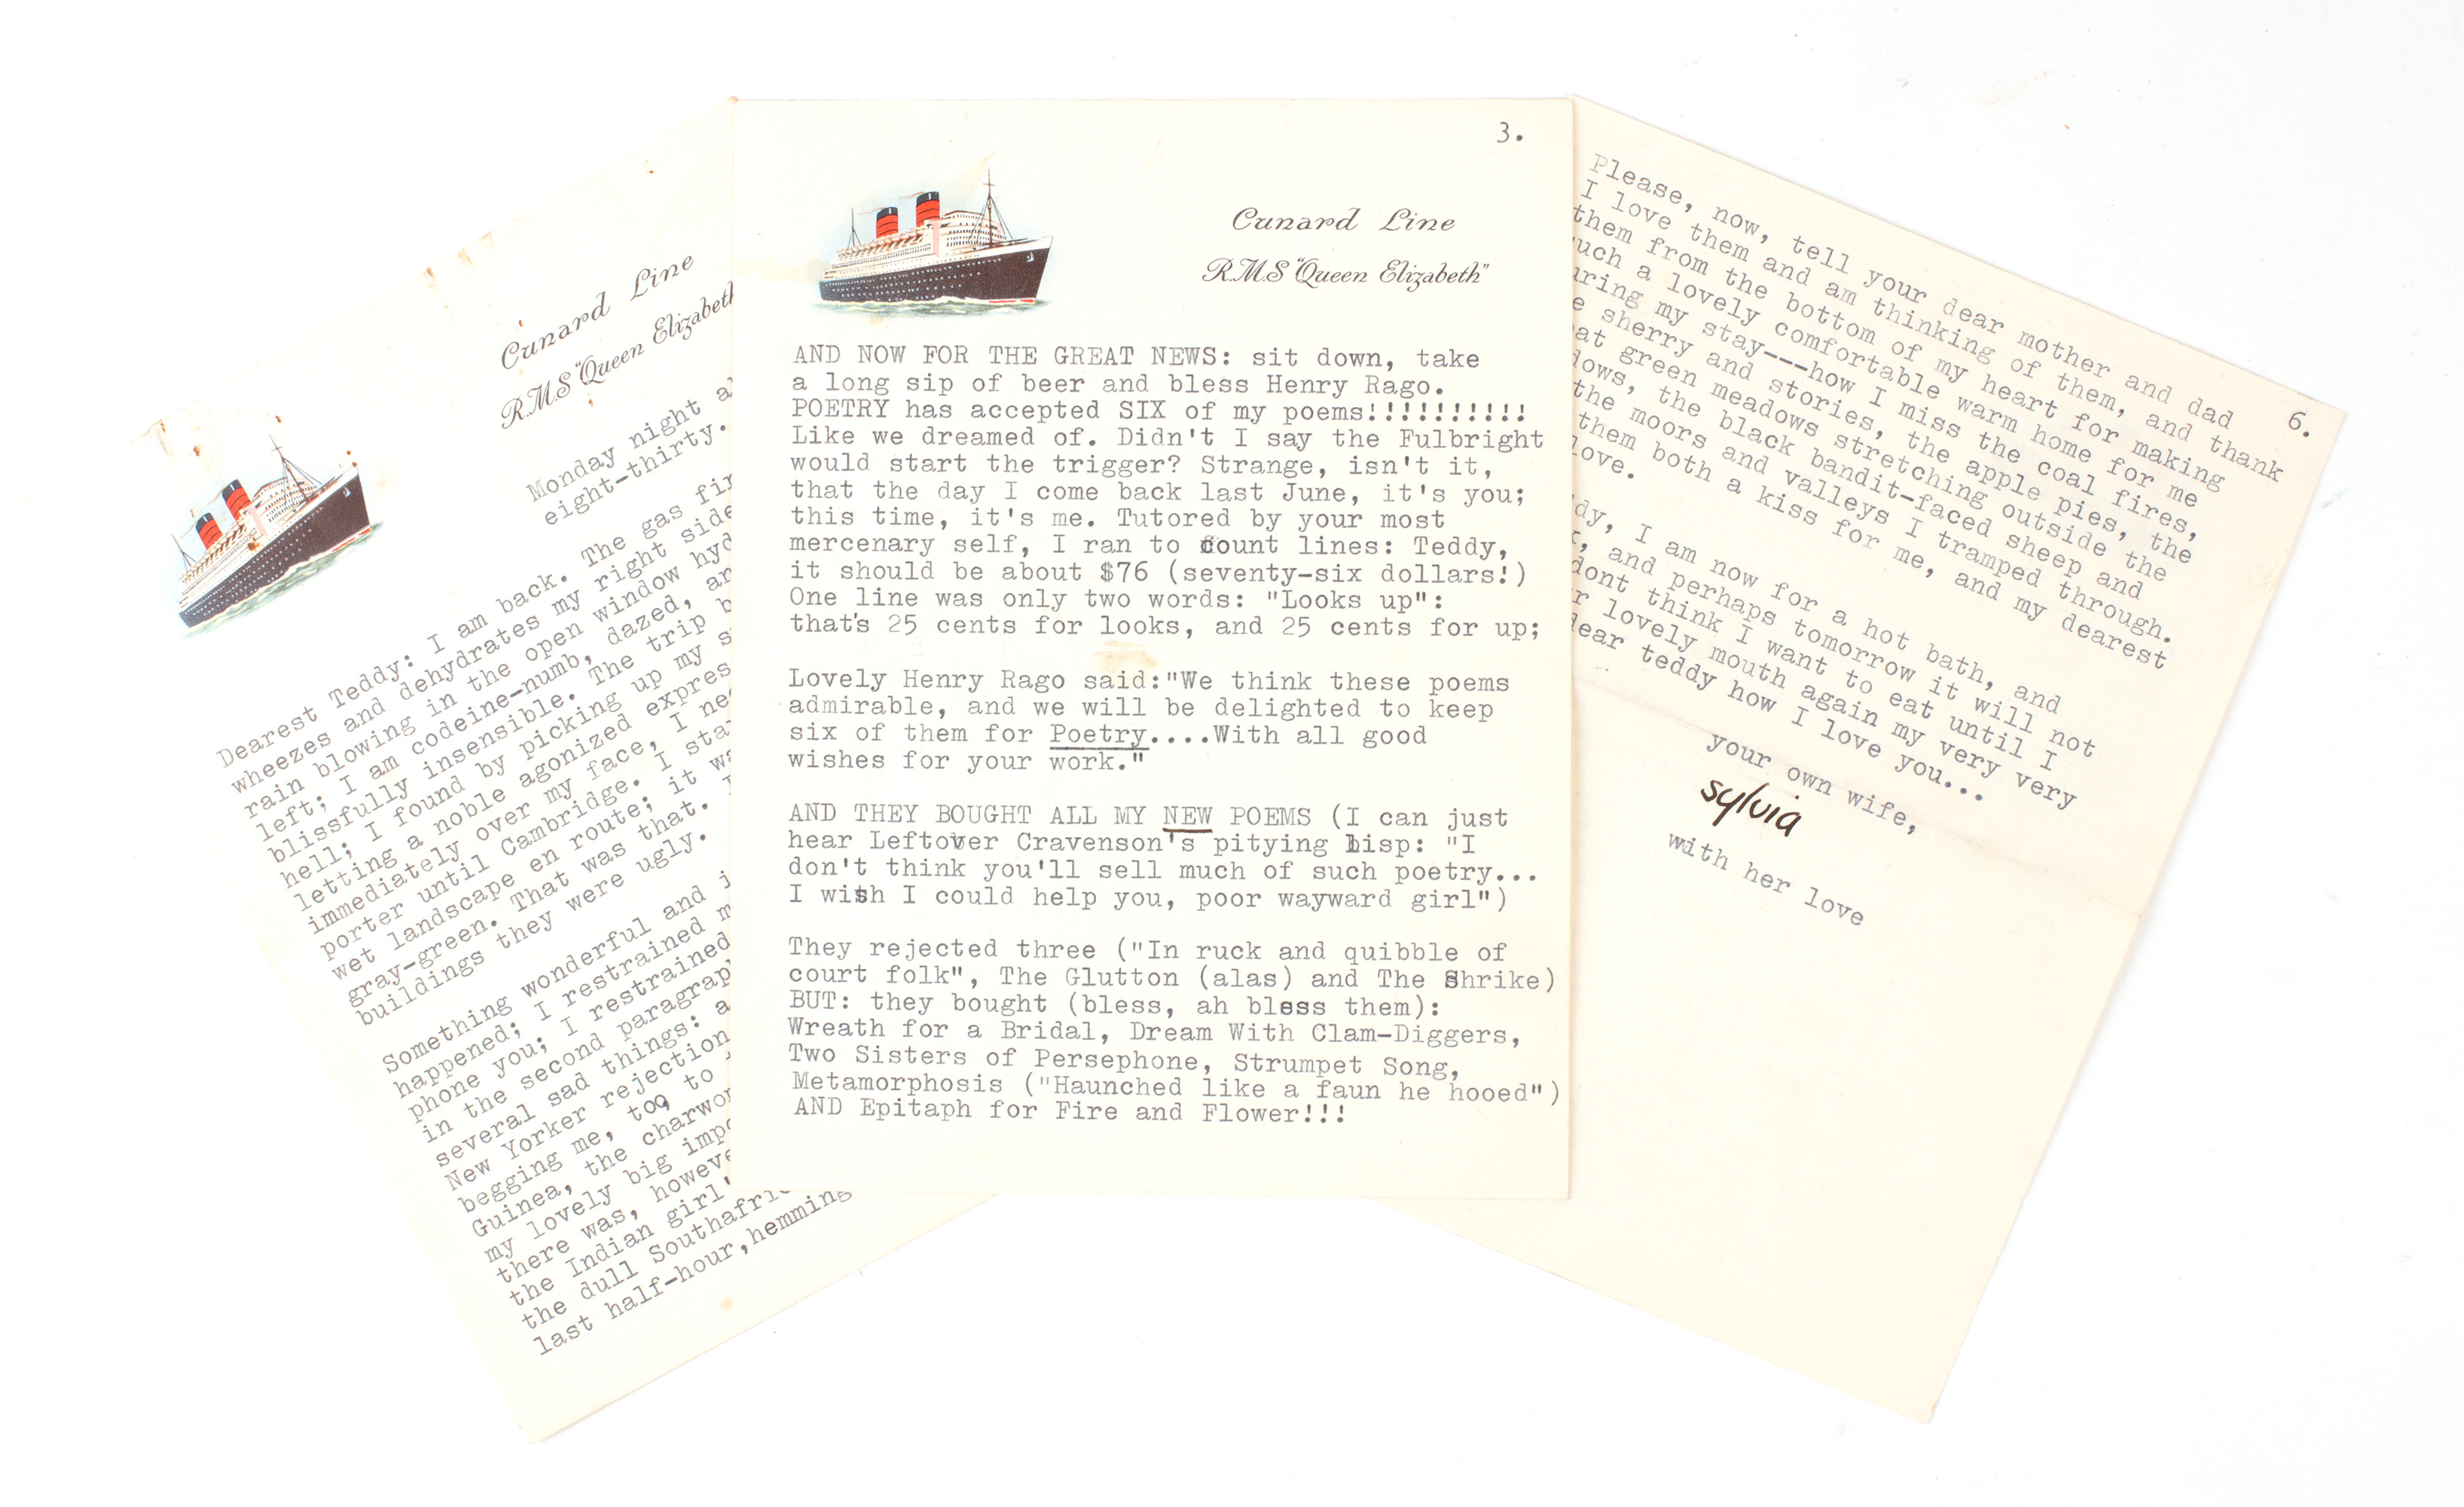 Cunard Line
R.M.S "Queen Elizabeth"
Monday night
eight-thirty.
Dearest Teddy: I am back. The gas
wheezes and dehydrates my right side
rain blowing in the open window
left; I am codeine-numb, dazed,
blissfully insensible. The trip
hell; I found by picking up my
letting a noble agonized
immediately over my face, I
porter until Cambridge. I
wet landscape en route; it
gray-green. That was that.
buildings they were ugly.
Something wonderful and
happened; I restrained
phone you; I restrained
in the second
several sad things:
New Yorker rejection
begging me, too, to
Guinea, the
my lovely big
there was,
the Indian girl'
the dull
last half-hour,hemming
3.
Cunard Line
R.M.S "Queen Elizabeth"
AND NOW FOR THE GREAT NEWS: sit down, take
a long sip of beer and bless Henry Rago.
POETRY has accepted SIX of my poems!!!!!!!!!!
Like we dreamed of. Didn't I say the Fulbright
would start the trigger? Strange, isn't it,
that the day I come back last June, it's you;
this time, it's me. Tutored by your most
mercenary self, I ran to count lines: Teddy,
it should be about $76 (seventy-six dollars!)
One line was only two words: "Looks up":
that's 25 cents for looks, and 25 cents for up;
Lovely Henry Rago said:"We think these poems
admirable, and we will be delighted to keep
six of them for Poetry....With all good
wishes for your work."
AND THEY BOUGHT ALL MY NEW POEMS (I can just
hear Leftover Cravenson's pitying lisp: "I
don't think you'll sell much of such poetry...
I wish I could help you, poor wayward girl")
They rejected three ("In ruck and quibble of
court folk", The Glutton (alas) and The Shrike)
BUT: they bought (bless, ah bless them):
Wreath for a Bridal, Dream With Clam-Diggers,
Two Sisters of Persephone, Strumpet Song,
Metamorphosis ("Haunched like a faun he hooed")
AND Epitaph for Fire and Flower!!!
6.
Please, now, tell your dear mother and dad
I love them and am thinking of them, and thank
them from the bottom of my heart for making
such a lovely comfortable warm home for me
my stay---how I miss the coal fires,
sherry and stories, the apple pies, the
green meadows stretching outside the
the black bandit-faced sheep and
the moors and valleys I tramped through.
them both a kiss for me, and my dearest
love.
I am now for a hot bath, and
and perhaps tomorrow it will not
dont think I want to eat until I
lovely mouth again my very very
dear teddy how I love you...
your own wife,
sylvia
with her love